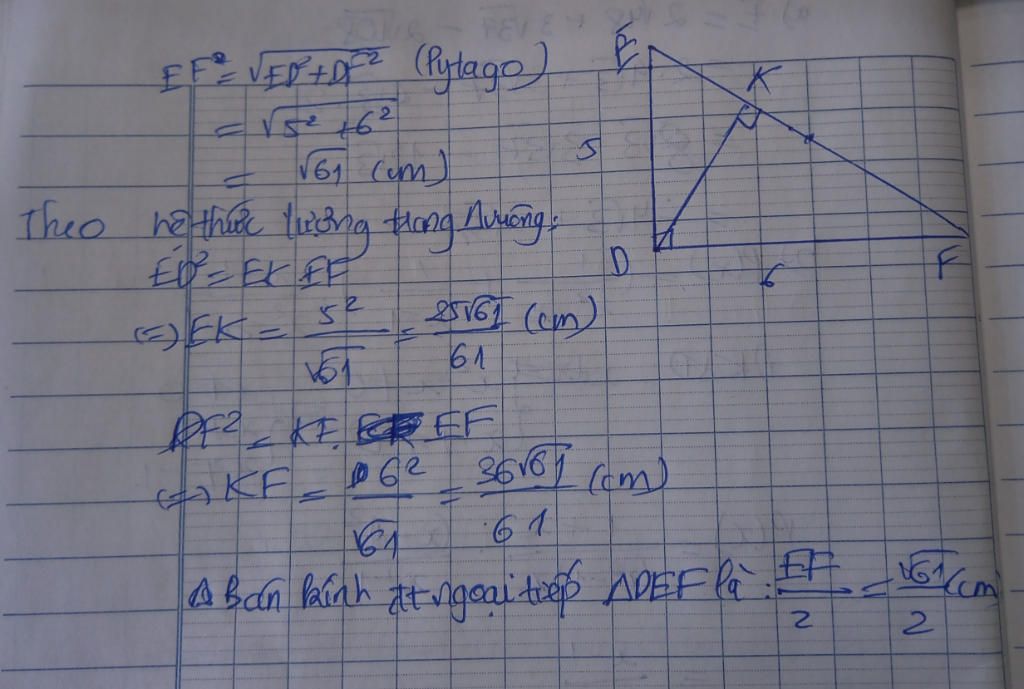 EF² = √ED²+DF² (Pytago)
= √5² + 6²
= √61 (cm)
Theo hệ thức lượng trong Δvuông:
ED² = EK EF
(=) EK = 5²/√61 = 25√61/61 (cm)
DF² = KF. EF
(=) KF = 6²/√61 = 36√61/61 (cm)
Bán kính đt ngoại tiếp ΔDEF là: EF/2 = √61/2 (cm)
E
K
5
D
6
F